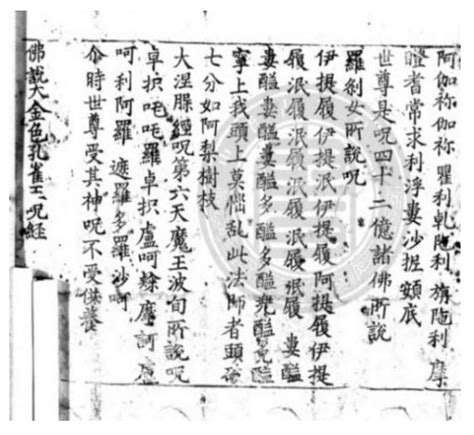 阿伽祢伽祢 瞿利乾陁利 旃陁利 摩
蹬耆常求利浮婁沙抳頞底
世尊是呪四十二億諸佛所説
羅刹女所説呪
伊提履伊提泯伊提履阿提履伊提
履泯履泯履泯履泯履 婁醯
婁醯婁醯婁醯多醯多醯兜醯兜醯
寧上我頭上莫惱乱此法師者頭破
七分如阿梨樹枝
大涅槃經呪第六天魔王波旬所説呪
卓抧吒吒羅卓抧盧呵隸摩訶盧
呵利阿羅 遮羅多羅沙呵
尒時世尊受其神呪不受供養
佛説大金色孔雀王呪経